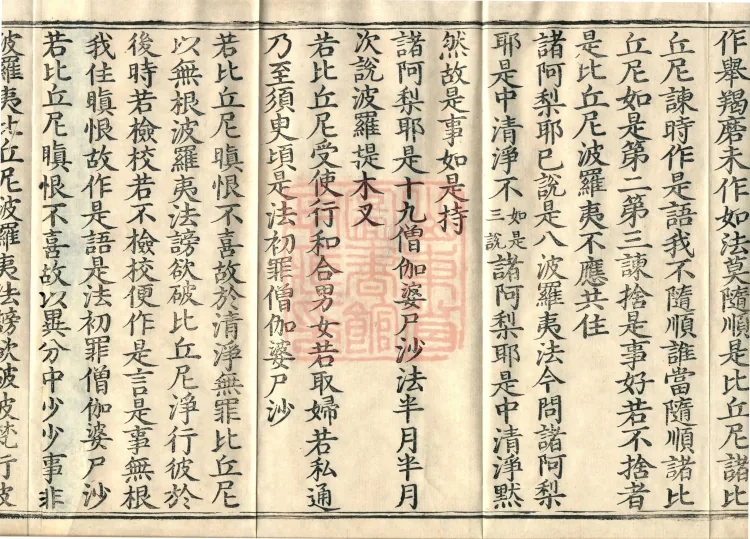 作舉羯磨未作如法莫隨順是比丘尼諸比
丘尼諫時作是語我不隨順誰當隨順諸比
丘尼如是第二第三諫捨是事好若不捨者
是比丘尼波羅夷不應共住
諸阿梨耶已說是八波羅夷法今問諸阿梨
耶是中清淨不如是三說諸阿梨耶是中清淨默
然故是事如是持
諸阿梨耶是十九僧伽婆尸沙法半月半月
次說波羅提木叉
若比丘尼受使行和合男女若取婦若私通
乃至須臾頃是法初罪僧伽婆尸沙
若比丘尼瞋恨不喜故於清淨無罪比丘尼
以無根波羅夷法謗欲破比丘尼淨行彼於
後時若檢校若不檢校便作是言是事無根
我住瞋恨故作是語是法初罪僧伽婆尸沙
若比丘尼瞋恨不喜故以異分中少少事非
波羅夷比丘尼波羅夷法謗欲破彼梵行彼